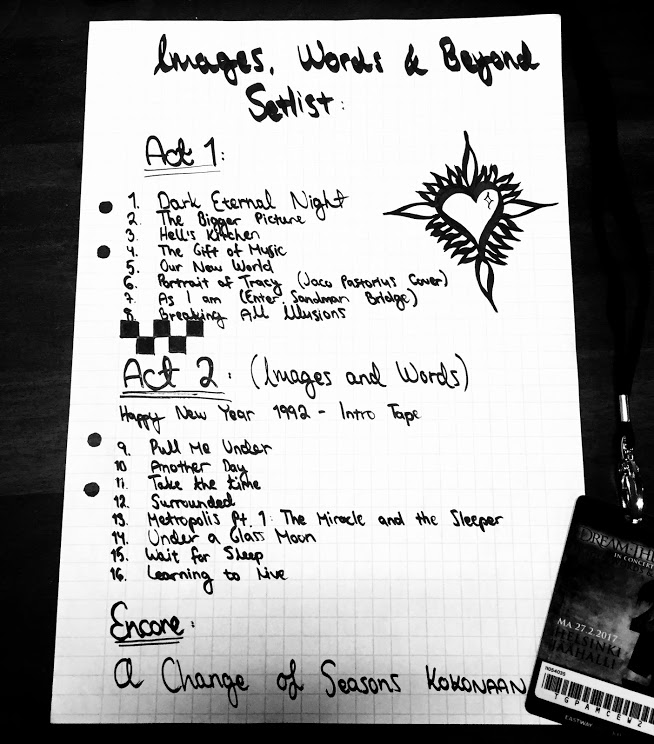 Images, Words & Beyond
Setlist:
Act 1:
1. Dark Eternal Night
2. The Bigger Picture
3. Hell's Kitchen
4. The Gift of Music
5. Our New World
6. Portrait of Tracy (Jaco Pastorius Cover)
7. As I am (Enter Sandman Bridge)
8. Breaking All Illusions
Act 2: (Images and Words)
Happy New Year 1992 - Intro Tape
9. Pull Me Under
10 Another Day
11. Take the time
12. Surrounded
13. Metropolis Pt. 1: The Miracle and the Sleeper
14. Under a Glass Moon
15. Wait for Sleep
16. Learning to Live
Encore:
A Change of Seasons KOKONAAN
DREAM THE
IN CONCERT
MA 27.2.2017
HELSINKI
JÄÄHALLI
TGPAMCEW2
EASTWAY